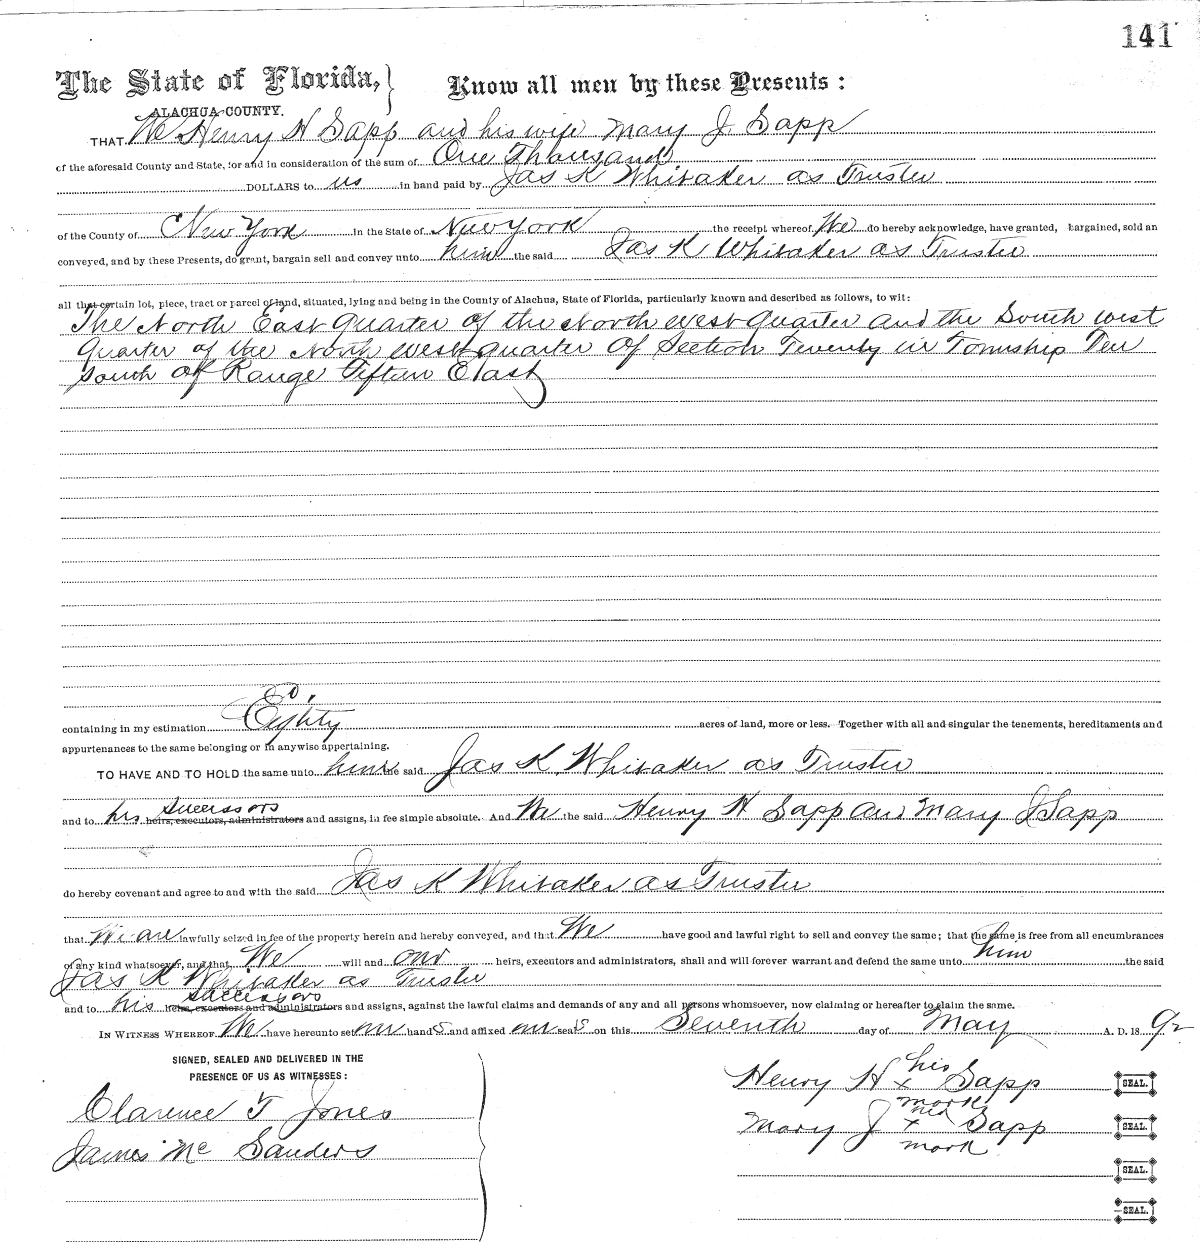 141
The State of Florida, } Know all men by these Presents:
ALACHUA COUNTY.
THAT We Henry H Sapp and his wife Mary J. Sapp
of the aforesaid County and State, for and in consideration of the sum of One Thousand
DOLLARS to us in hand paid by Jas K Whitaker as Trustee
of the County of New York in the State of New York the receipt whereof We do hereby acknowledge, have granted, bargained, sold an
conveyed, and by these Presents, do grant, bargain sell and convey unto him the said Jas K Whitaker as Trustee
all that certain lot, piece, tract or parcel of land, situated, lying and being in the County of Alachua, State of Florida, particularly known and described as follows, to wit:
The North East quarter of the North West quarter and the South West
quarter of the North West quarter of Section Twenty in Township Ten
South of Range Fifteen East
80,
containing in my estimation Eighty acres of land, more or less. Together with all and singular the tenements, hereditaments and
appurtenances to the same belonging or in anywise appertaining.
TO HAVE AND TO HOLD the same unto him the said Jas K Whitaker as Trustee
successors
and to his heirs, executors, administrators and assigns, in fee simple absolute. And We the said Henry H Sapp and Mary J Sapp
do hereby covenant and agree to and with the said Jas K Whitaker as Trustee
that We are lawfully seized in fee of the property herein and hereby conveyed, and that We have good and lawful right to sell and convey the same; that the same is free from all encumbrances
of any kind whatsoever, and that We will and our heirs, executors and administrators, shall and will forever warrant and defend the same unto him the said
Jas K Whitaker as Trustee
successors
and to his heirs, executors and administrators and assigns, against the lawful claims and demands of any and all persons whomsoever, now claiming or hereafter to claim the same.
IN WITNESS WHEREOF We have hereunto set our hands and affixed our seals on this Seventh day of May A. D. 1892
SIGNED, SEALED AND DELIVERED IN THE
PRESENCE OF US AS WITNESSES:
his
Henry H x Sapp SEAL.
mark
Clarence T Jones
her
Mary J x Sapp SEAL.
mark
James Mc Sanders
SEAL.
SEAL.